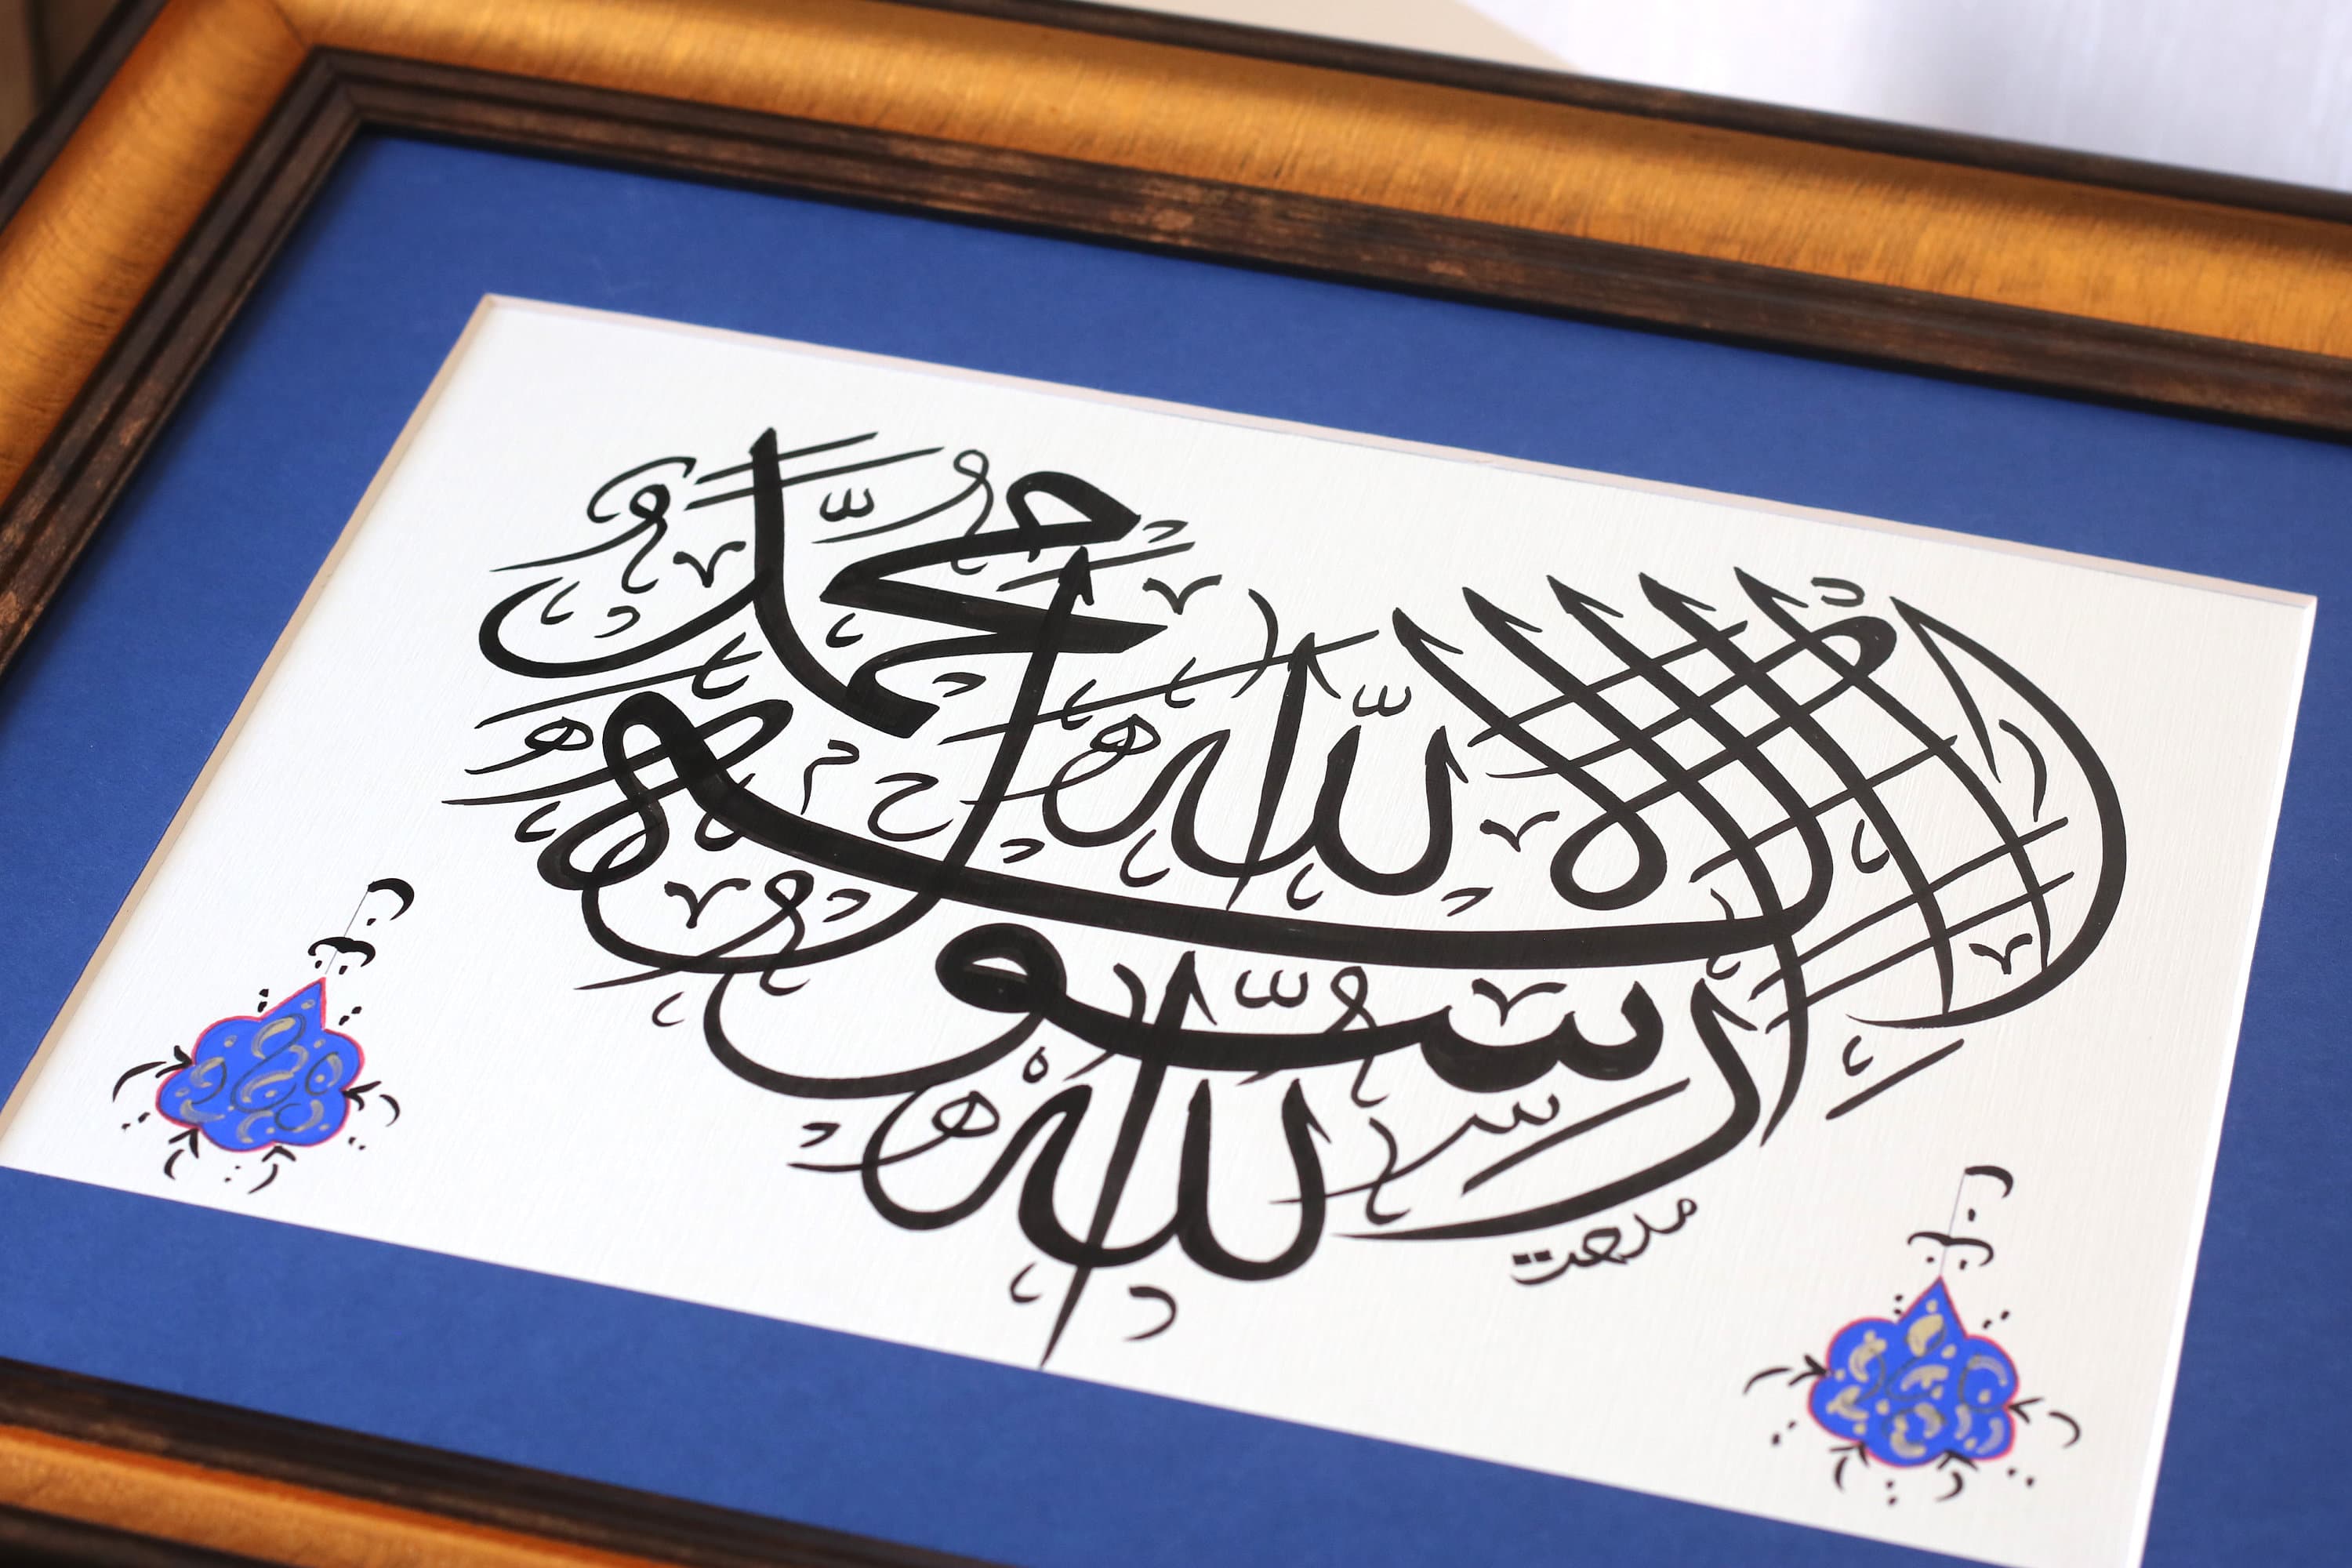 لا إله إلا الله محمد
رسول الله
مدحت